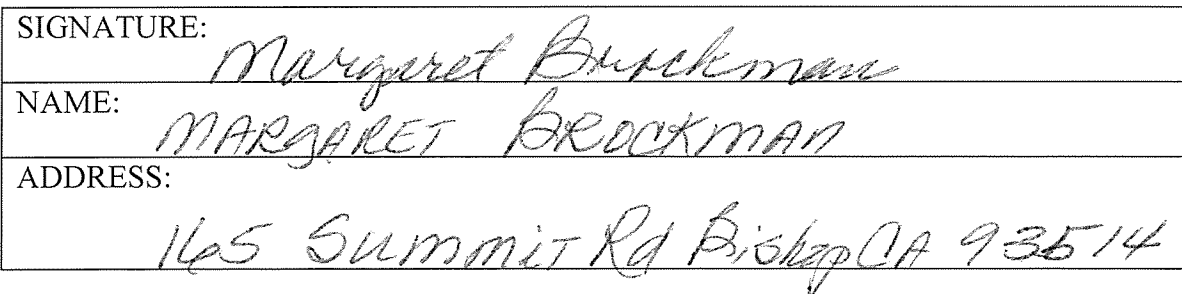 SIGNATURE: Margaret Brockman
NAME: MARGARET BROCKMAN
ADDRESS:
165 Summit Rd Bishop CA 93514